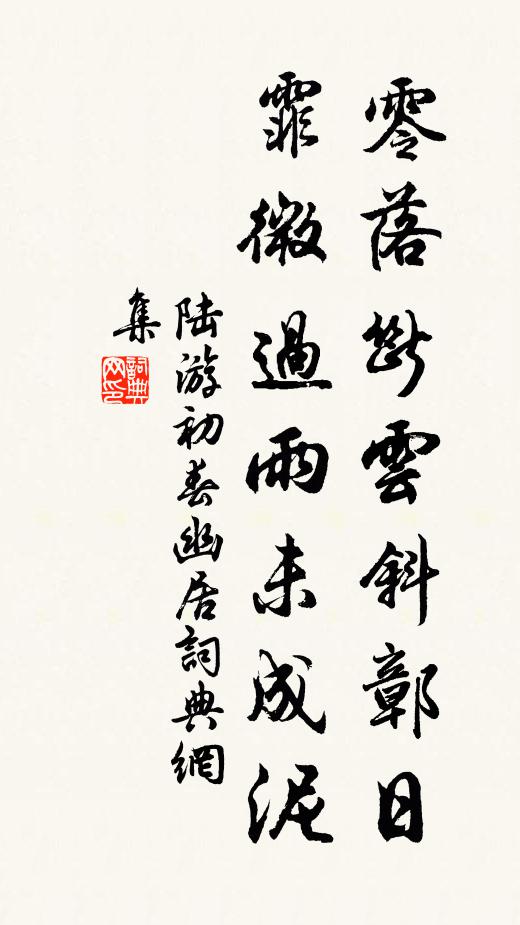 零落斷雲斜鄣日
霏微過雨未成泥
陸游初春幽居詞典網
集
詞典
网印